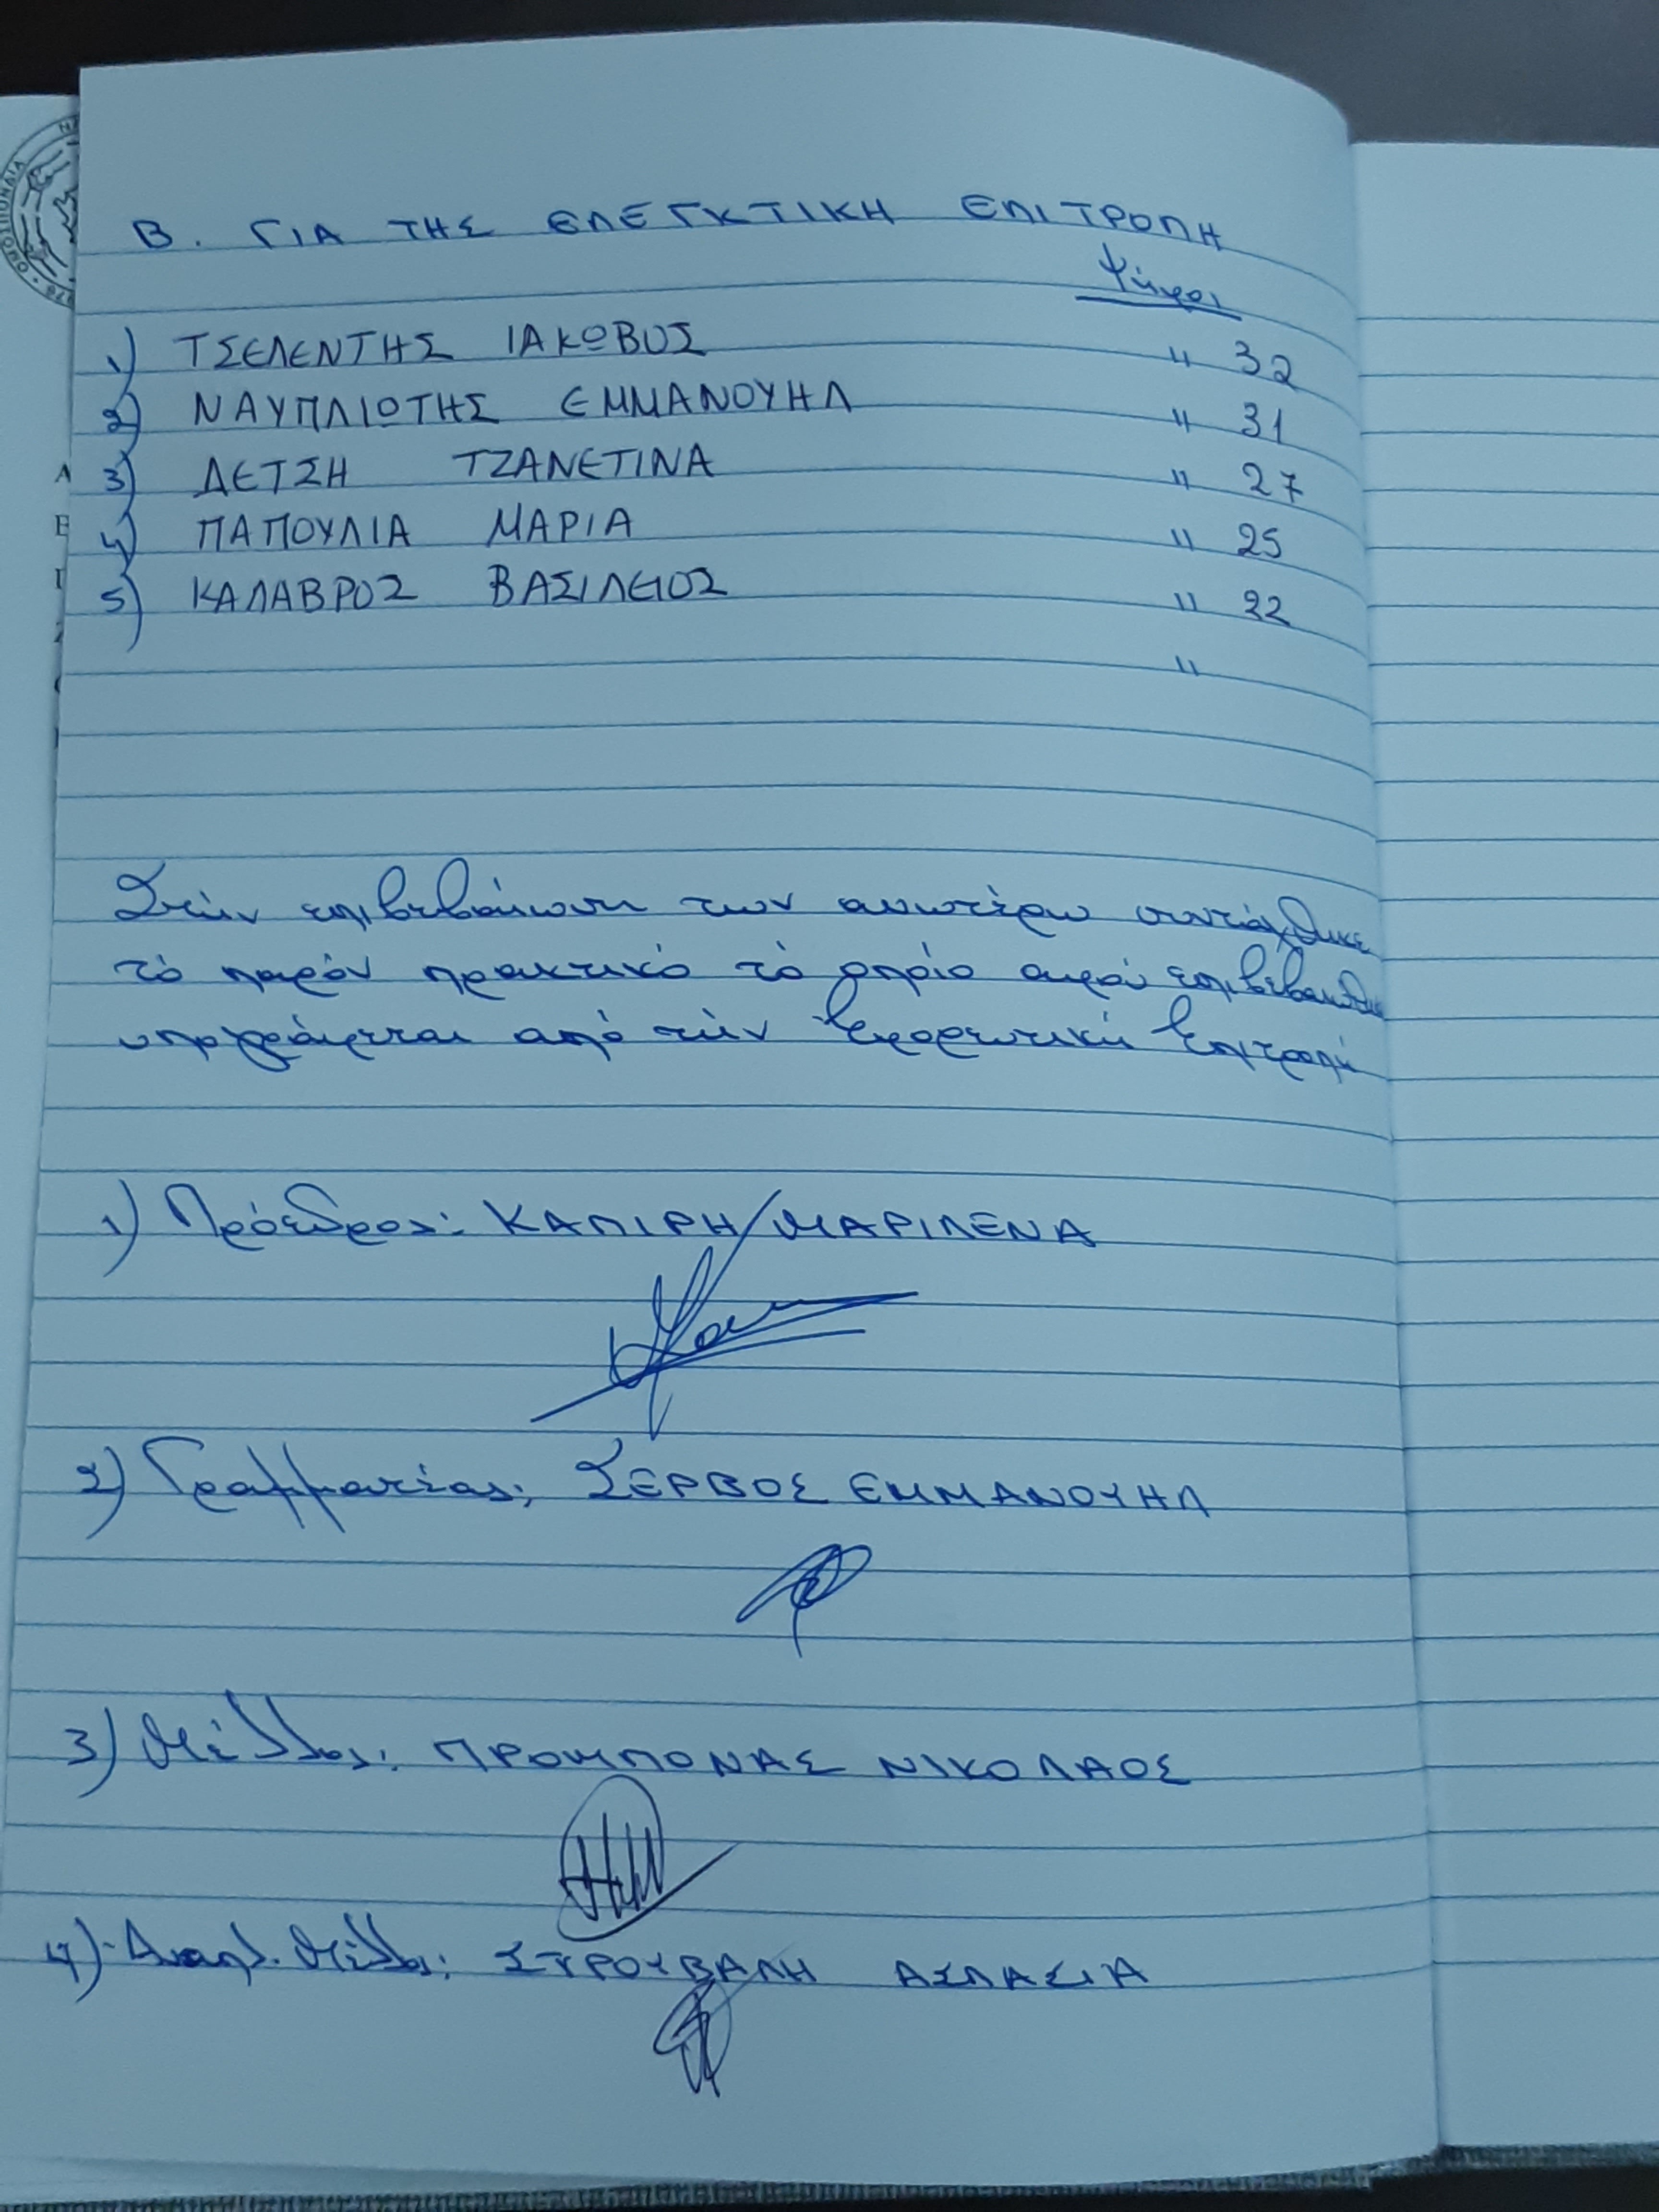 Β. ΓΙΑ ΤΗΣ ΕΛΕΓΚΤΙΚΗ ΕΠΙΤΡΟΠΗ
Ψήφοι
1) ΤΣΕΛΕΝΤΗΣ ΙΑΚΩΒΟΣ " 32
2) ΝΑΥΠΛΙΩΤΗΣ ΕΜΜΑΝΟΥΗΛ " 31
3) ΔΕΤΣΗ ΤΖΑΝΕΤΙΝΑ " 27
4) ΠΑΠΟΥΛΙΑ ΜΑΡΙΑ " 25
5) ΚΑΛΑΒΡΟΣ ΒΑΣΙΛΕΙΟΣ " 22
"
Στήν επιβεβαίωση των ανωτέρω συντάχθηκε
τό παρόν πρακτικό τό οποίο αφού επιβεβαιώθηκε
υπογράφεται από τήν Εφορευτική Επιτροπή
1) Πρόεδρος: ΚΑΠΙΡΗ ΜΑΡΙΛΕΝΑ
2) Γραμματέας: ΣΕΡΒΟΣ ΕΜΜΑΝΟΥΗΛ
3) Μέλλος: ΠΡΟΜΠΟΝΑΣ ΝΙΚΟΛΑΟΣ
4) Αναπλ. Μέλλος: ΣΥΡΟΥΒΑΛΗ ΑΣΠΑΣΙΑ